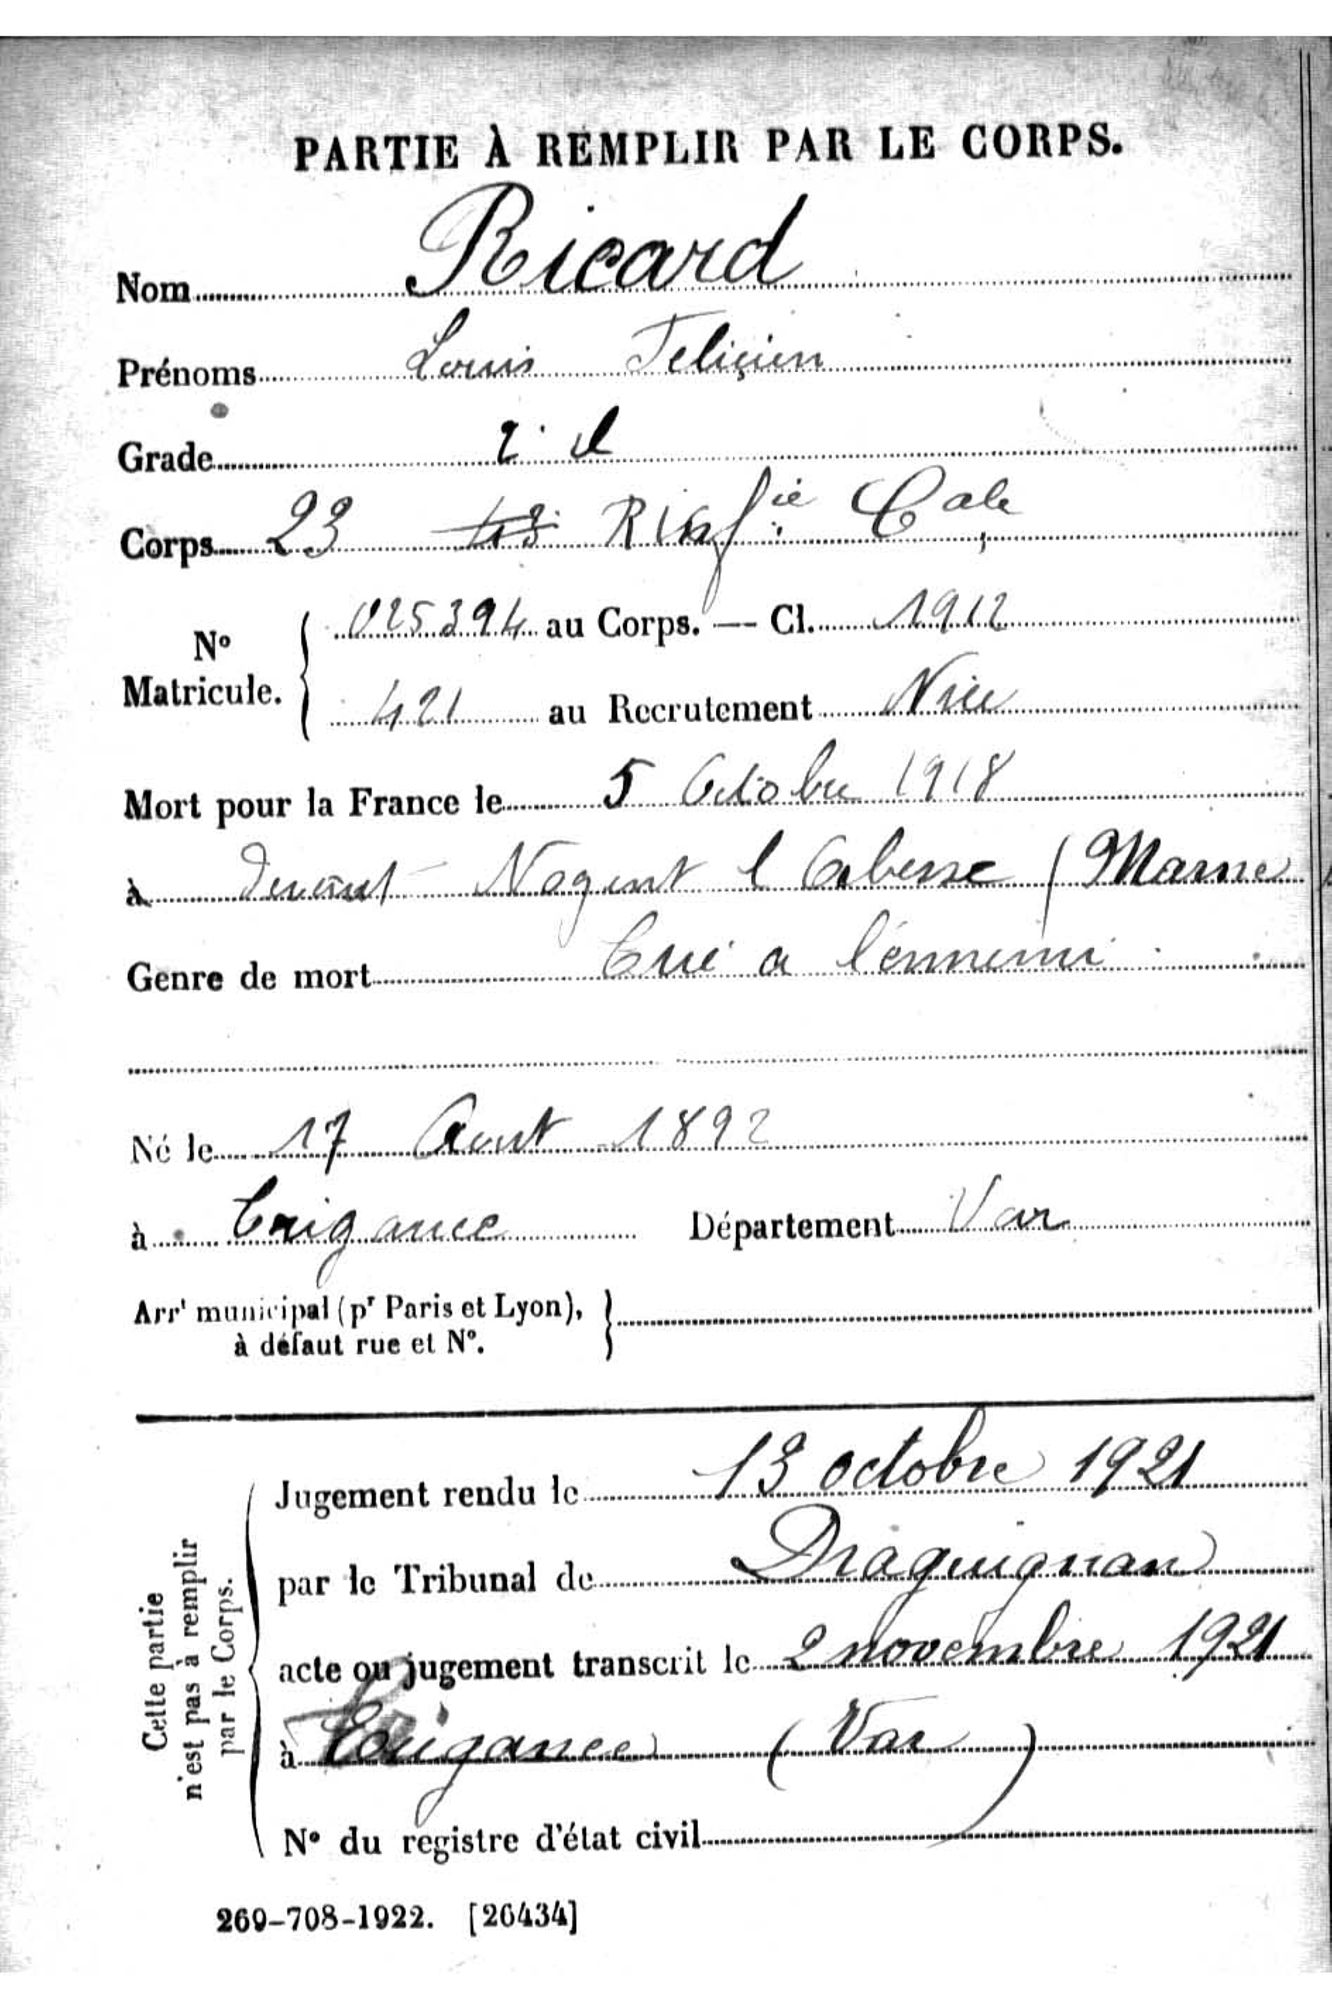 PARTIE À REMPLIR PAR LE CORPS.
Nom Ricard
Prénoms Louis Feliçien
Grade 2e cl
Corps 23 43 R Infie Cale
No Matricule. 025394 au Corps. — Cl. 1912
421 au Recrutement Nice
Mort pour la France le 5 Octobre 1918
à devant Nogent l Abesse (Marne
Genre de mort Tué a l'ennemi
Né le 17 Aout 1892
à Trigance Département Var
Arrt municipal (pr Paris et Lyon),
à défaut rue et No.
Cette partie n'est pas à remplir par le Corps.
Jugement rendu le 13 octobre 1921
par le Tribunal de Draguignan
acte ou jugement transcrit le 2 novembre 1921
à Trigance (Var)
No du registre d'état civil
269-708-1922. [26434]